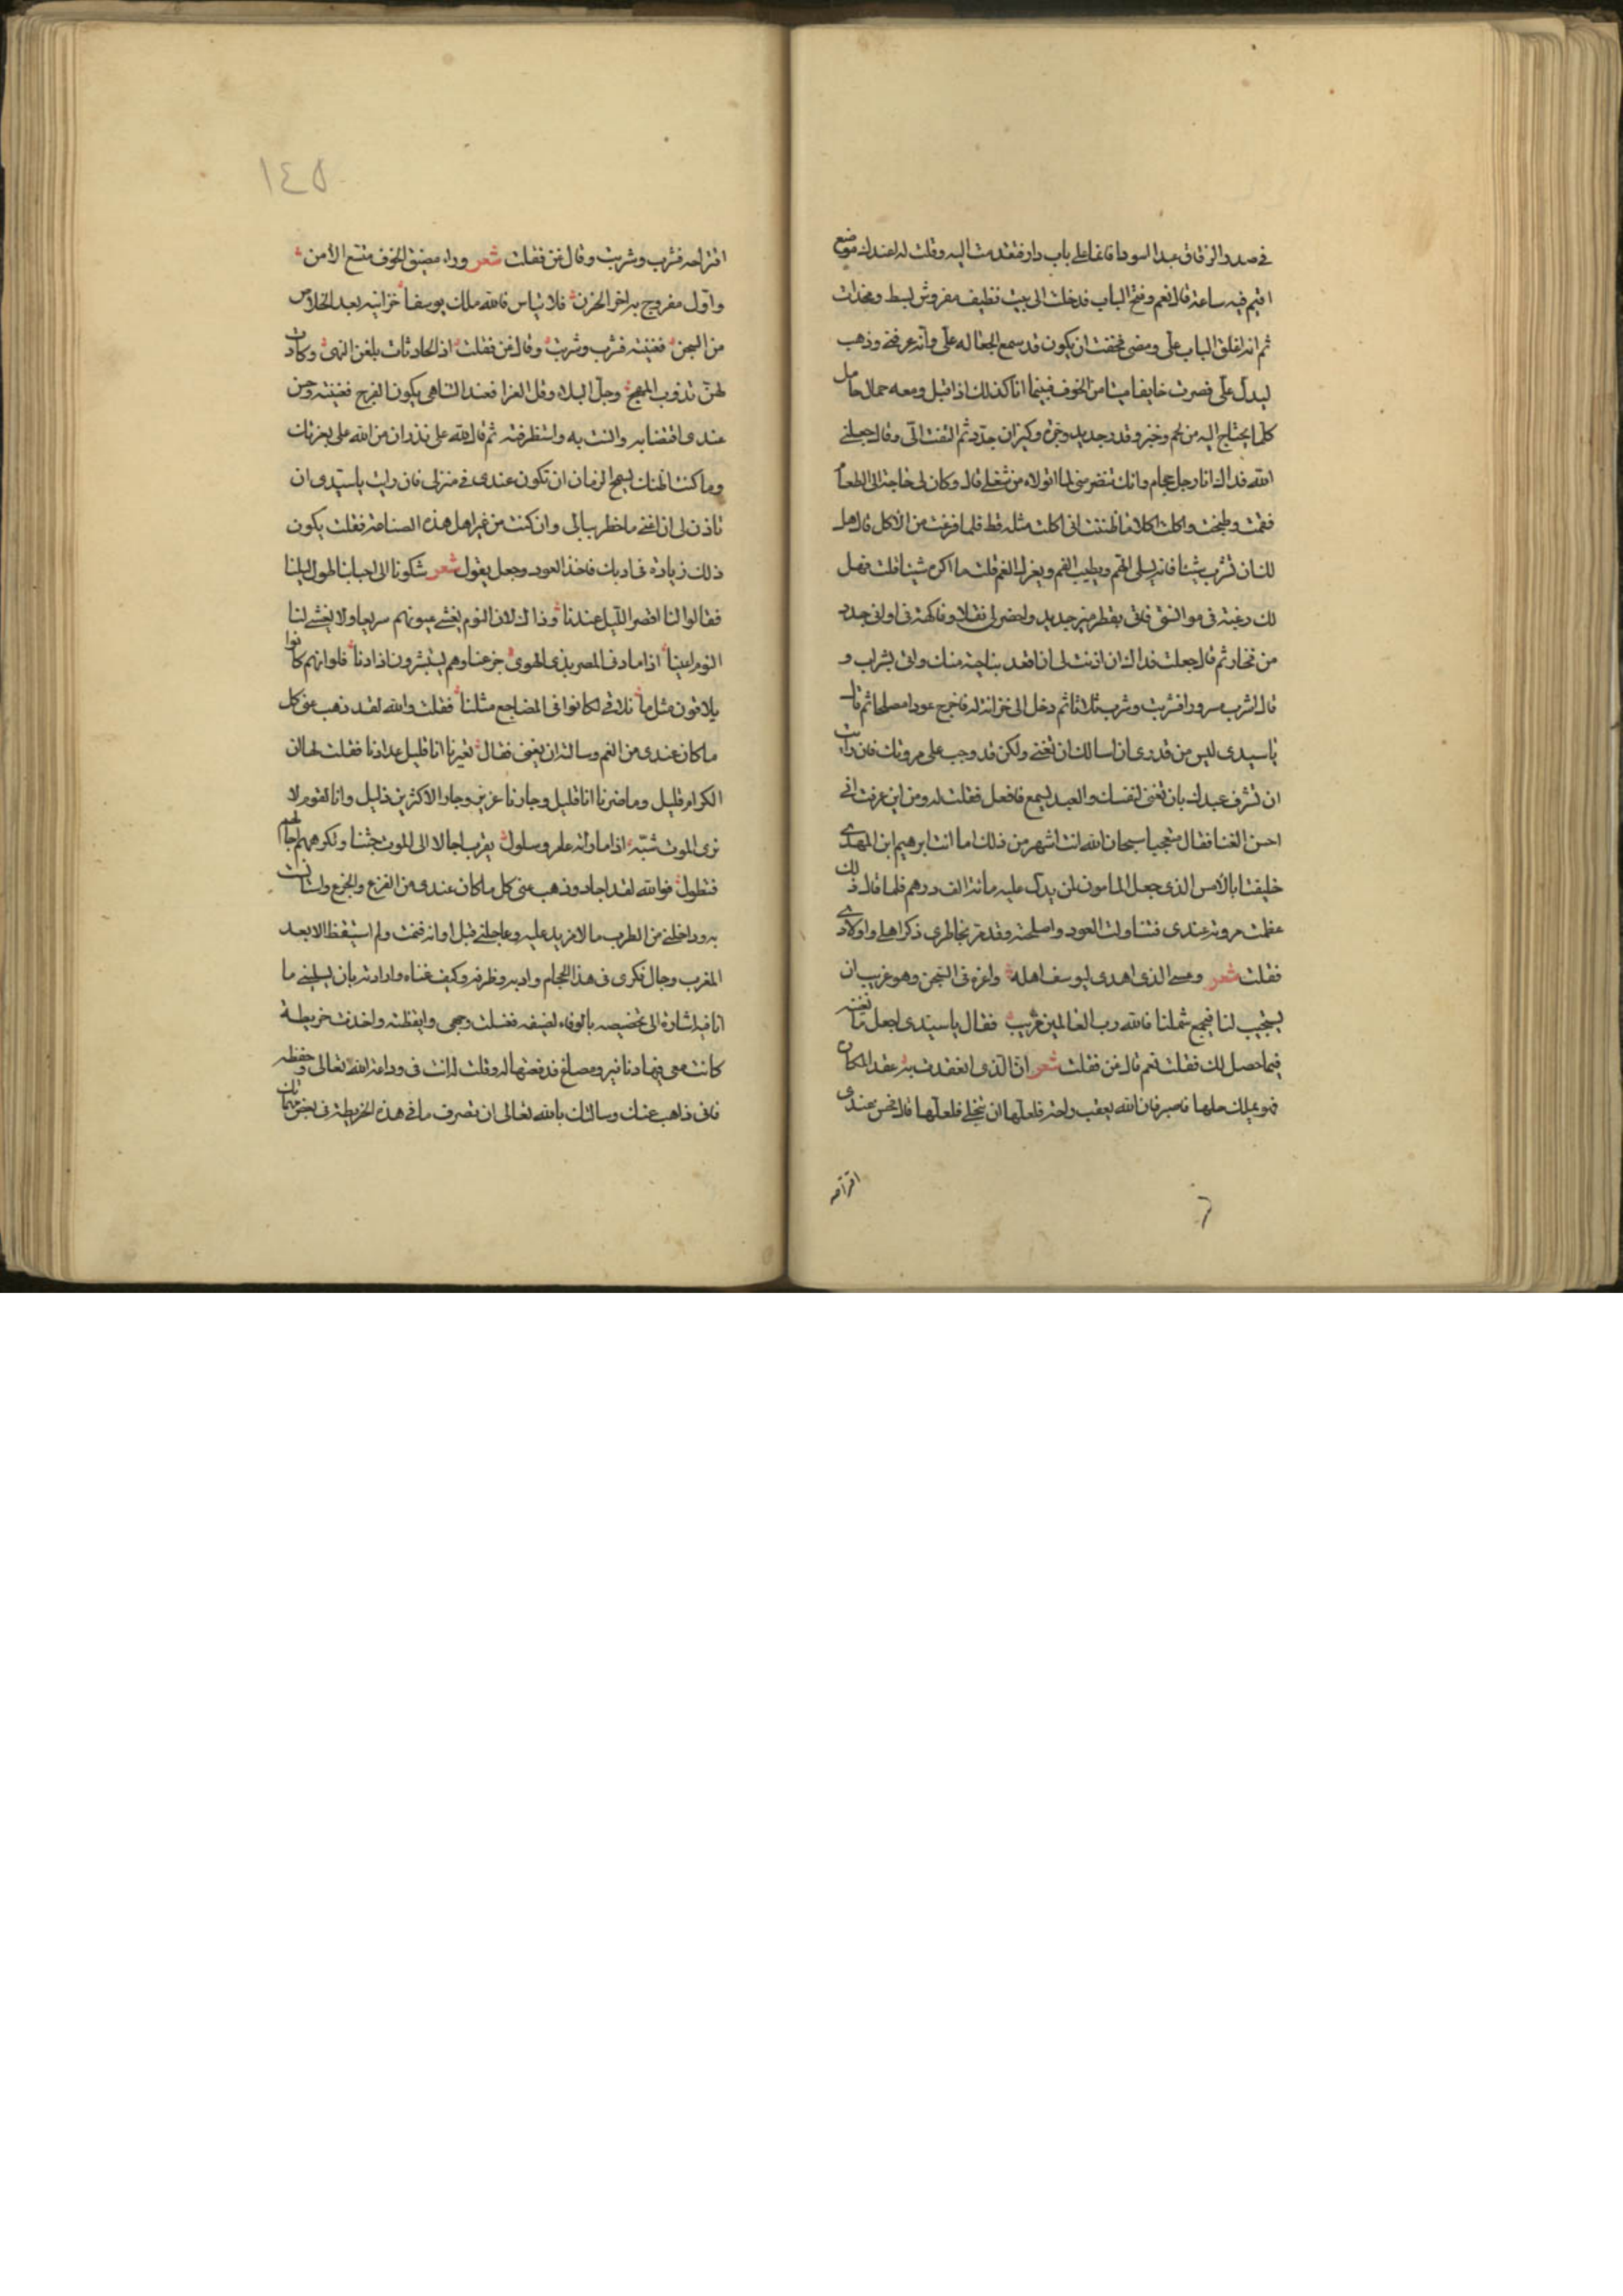 في صدر الزقاق عبدا اسودا قائما على باب دار فتقدمت اليه وقلت له اعندك موضع
اقيم فيه ساعة قال نعم وفتح الباب فدخلت الى بيت نظيف مفروش ببسط ومخدات
ثم انه اغلق الباب علي ومضى فخفت ان يكون قد سمع الجعاله علي وانه عرفني وذهب
ليدل علي فصرت خايفا ميتا من الخوف فبينما انا كذلك اذ اقبل ومعه حمال حامل
كلما يحتاج اليه من لحم وخبز وقدر جديد وجرة وكيزان جدد ثم التفت الي وقال جعلني
الله فداك انا رجل حجام وانك تتقزز مني لما اتولاه من شغلي قال وكان لي حاجة الى الطعام
فقمت وطبخت واكلت اكلا ما ظننت اني اكلت مثله قط فلما فرغت من الاكل قال هل
لك ان تشرب شيئا فانه يسلي الهم ويطيب الفم ويزل الغم قلت ما اكره شيئا قلت فهل
لك رغبة في موانستي فاتى بقطرميز جديد واحضر لي نقلا وفاكهة في اواني جدد
من فخار ثم قال جعلت فداك ان اذنت لي ان اقعد بناحية منك واتى بشراب و
قال اشرب سرورا فشربت وشرب ثلاثا ثم دخل الى خزانة له فاخرج عودا مصلحا ثم قال
يا سيدي ليس من قدري ان اسالك ان تغني ولكن قد وجب على مروتك فان رايت
ان تشرف عبدك بان تغني لنفسك والعبد ليسمع فافعل فقلت له ومن اين عرفت اني
احسن الغنا فقال متعجبا سبحان الله انت اشهر من ذلك اما انت ابرهيم ابن المهدي
خليفتنا بالامس الذي جعل المامون لمن يدل عليه مائة الف درهم فلما قال ذلك
عظمت مروته عندي فتناولت العود واصلحته وقد مر بخاطري ذكر اهلي واولادي
فقلت شعر وعسى الذي اهدى ليوسف اهله واعزه في السجن وهو غريب ان
يستجيب لنا فيجمع شملنا فالله رب العالمين قريب فقال يا سيدي اجعل ما تغنيه
فيما حصل لك فقلت نعم قال غن فقلت شعر ان الذي انعقدت به عقد المكان
فهو يملك حلها فاصبر فان الله يعقب راحة فلعلها ان تنجلي فلعلها قال فحسن عندي
اقتراحه
اقتراحه فشرب وشربت وقال غن فقلت شعر وراء مضيق الخوف متسع الامن
واول مفروح به اخر الحزن فلا تياس فالله ملك يوسفا خزائنه بعد الخلاص
من السجن فغنيته فشرب وشربت وقال غن فقلت اذ الحادثات بلغن النهى وكادت
لهن تذوب المهج وجل البلاء وقل العزا فعند التناهي يكون الفرج فغنيته وحسن
عندي اقتضابه وانست به واستظرفته ثم قال لله علي نذر ان من الله علي بعزتك
وما كنت اظنك يسمح الزمان ان تكون عندي في منزلي فان رايت يا سيدي ان
تاذن لي ان اغني ما خطر ببالي وان كنت من غير اهل هذه الصناعة فقلت يكون
ذلك زيادة في ادبك فاخذ العود وجعل يقول شعر شكونا الى احبابنا طول ليلنا
فقالوا لنا اقصر الليل عندنا وذاك لان النوم يغشى عيونهم سريعا ولا يغشى لنا
النوم اعينا اذا ما دنى الليل المضر بذي الهوى جزعنا وهم يستبشرون اذا دنا فلو انهم كانوا
يلاقون مثل ما نلاقي لكانوا في المضاجع مثلنا فقلت والله لقد ذهب عني كل
ما كان عندي من الغم وسالته ان يغني فقال تعيرنا انا قليل عدادنا فقلت لها ان
الكرام قليل وما ضرنا انا قليل وجارنا عزيز وجار الاكثرين ذليل وانا لقوم لا
نرى الموت سبة اذا ما راته عامر وسلول يقرب اجالا الى الموت حبنا وتكرههم اجالهم
فتطول فوالله لقد اجاد وذهب عني كل ما كان عندي من الفزع والجزع وانست
به وداخلني من الطرب ما لا مزيد عليه وعاجلني قبل اوانه فنمت ولم استيقظ الا بعد
المغرب وجال فكري في هذا الحجام وادبه وظرفه وكيف غناه وارادته بان يسليني ما
انا فيه اشارة الى تخصيصه بالوفاء لضيفه فغسلت وجهي وايقظته واخذت خريطة
كانت معي فيها دنانير ومصاغ فدفعتها له وقلت له انت في وداعة الله تعالى وحفظه
فاني ذاهب عنك وسالتك بالله تعالى ان تصرف ما في هذه الخريطة في بعض مهماتك
١٤٥